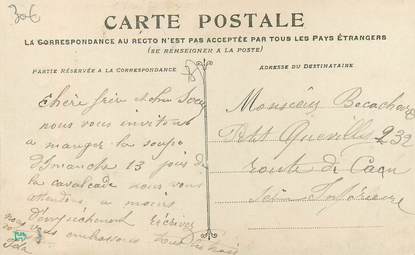 30€
CARTE POSTALE
LA CORRESPONDANCE AU RECTO N'EST PAS ACCEPTÉE PAR TOUS LES PAYS ÉTRANGERS
(SE RENSEIGNER A LA POSTE)
PARTIE RÉSERVÉE A LA CORRESPONDANCE
ADRESSE DU DESTINATAIRE
chère frère et chère Sœur
nous vous invitons
a manger la soupe
dimanche 13 jour de
la cavalcade nous vous
attendons, a moins
d'empêchement écrivez
nous vous embrassons tous les trois
Monsieur
Petit Quevilly 232
route de Caen
Seine Inférieure